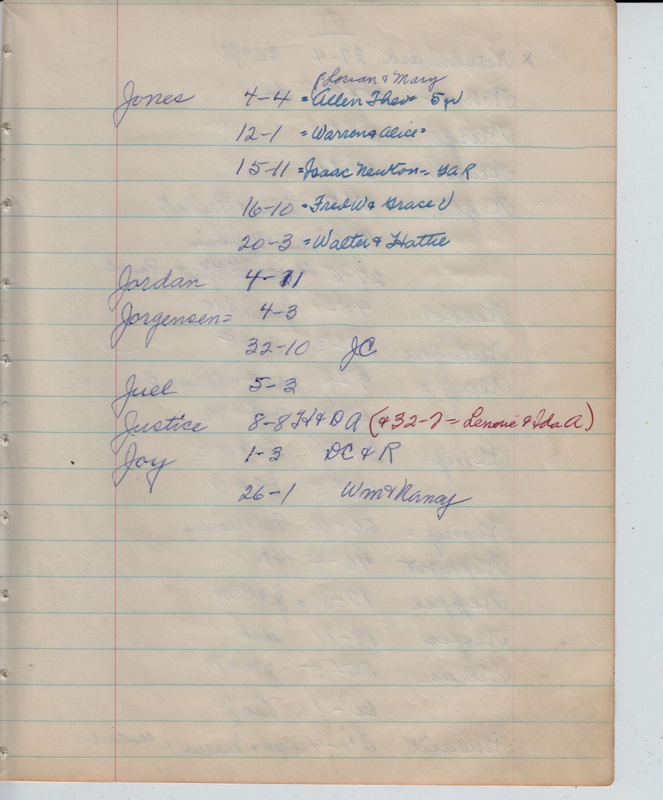 Lorian & Mary
Jones 4-4 = Allen Theo = 5 yd
12-1 = Warren & Alice =
15-11 = Isaac Newton = GAR
16-10 = Fred W & Grace V
20-3 = Walter & Hattie
Jordan 4-11
Jorgensen = 4-3
32-10 JC
Juel 5-3
Justice 8-8 H & DA (& 32-7 = Lenovie & Ida A)
Joy 1-3 DC & R
26-1 Wm & Nancy